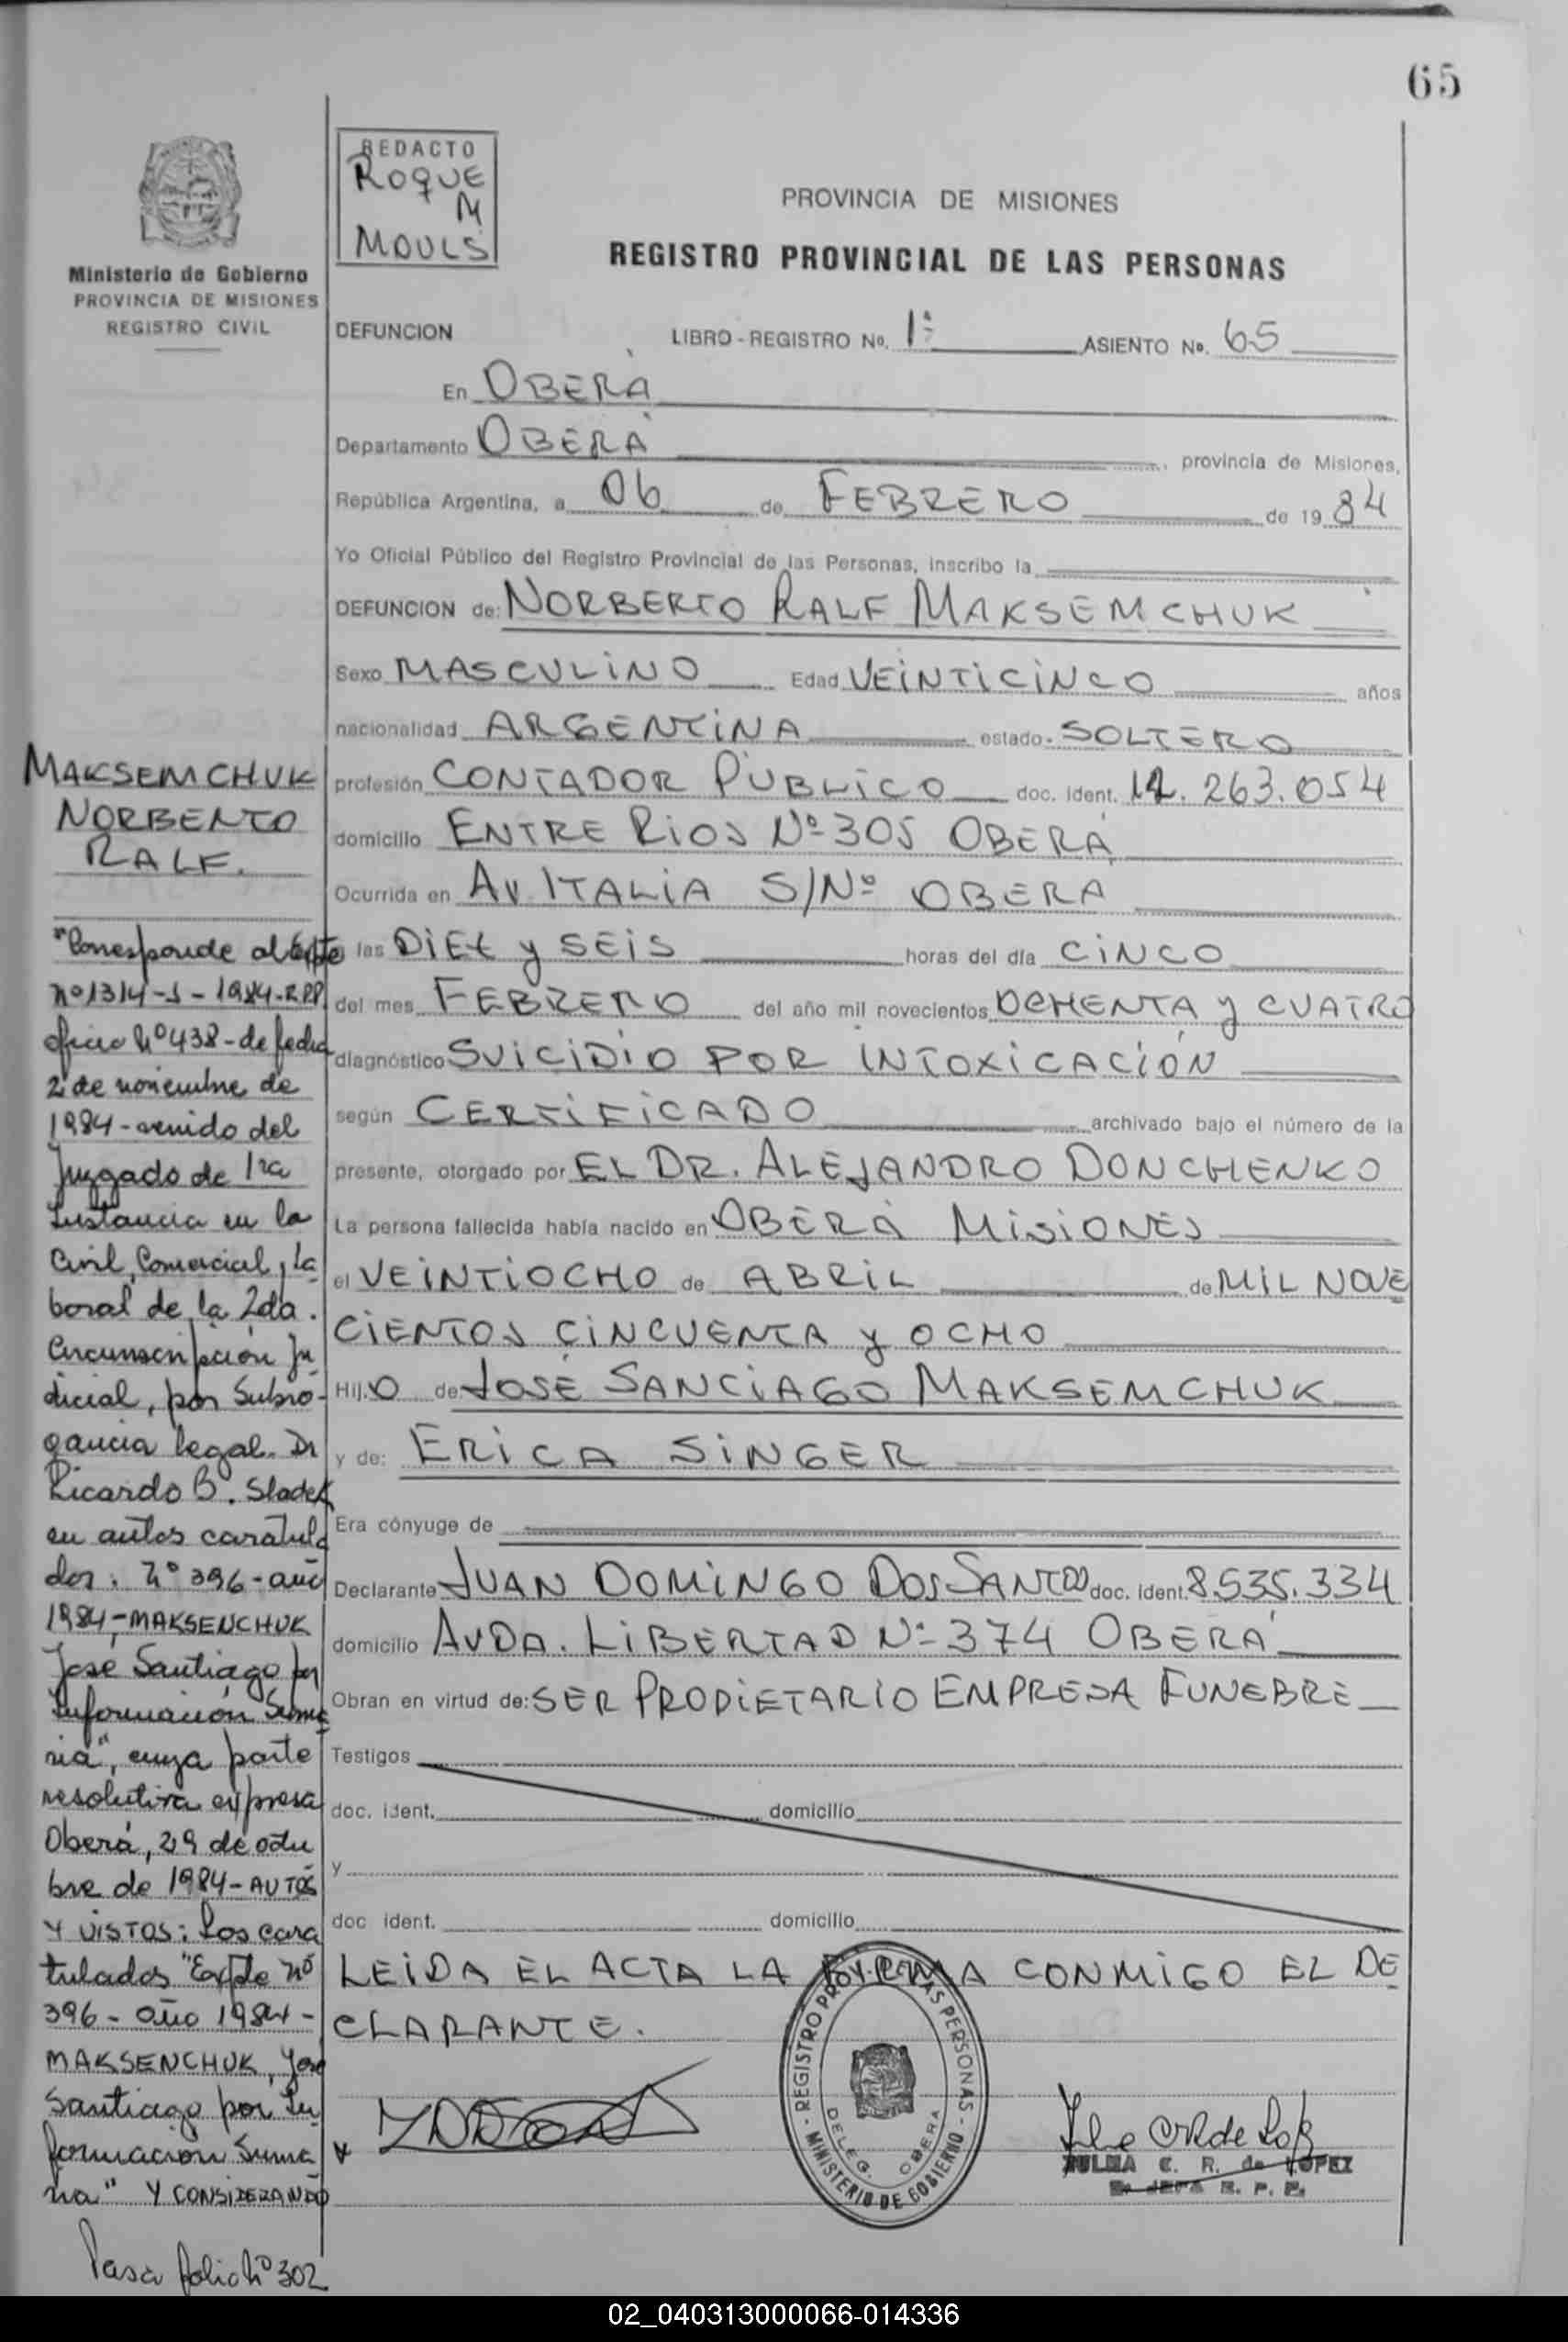 65
REDACTO
ROQUE
M
MOULS
Ministerio de Gobierno
PROVINCIA DE MISIONES
REGISTRO CIVIL
PROVINCIA DE MISIONES
REGISTRO PROVINCIAL DE LAS PERSONAS
DEFUNCION LIBRO - REGISTRO No. 1º ASIENTO No. 65
En OBERÁ
Departamento OBERÁ, provincia de Misiones,
República Argentina, a 06 de FEBRERO de 1984
Yo Oficial Público del Registro Provincial de las Personas, inscribo la
DEFUNCION de: NORBERTO RALF MAKSEMCHUK
Sexo MASCULINO Edad VEINTICINCO años
nacionalidad ARGENTINA estado SOLTERO
profesión CONTADOR PUBLICO doc. ident. 12.263.054
domicilio ENTRE RIOS Nº 305 OBERÁ
Ocurrida en AV. ITALIA S/Nº OBERÁ
las DIEZ y SEIS horas del día CINCO
del mes FEBRERO del año mil novecientos OCHENTA y CUATRO
diagnóstico SUICIDIO POR INTOXICACIÓN
según CERTIFICADO archivado bajo el número de la
presente, otorgado por EL DR. ALEJANDRO DONCHENKO
La persona fallecida había nacido en OBERÁ MISIONES
el VEINTIOCHO de ABRIL de MIL NOVE
CIENTOS CINCUENTA y OCHO
HijO de JOSÉ SANTIAGO MAKSEMCHUK
y de: ERICA SINGER
Era cónyuge de
Declarante JUAN DOMINGO DOS SANTOS doc. ident. 8.535.334
domicilio AVDA. LIBERTAD Nº 374 OBERÁ
Obran en virtud de: SER PROPIETARIO EMPRESA FUNEBRE
Testigos
doc. ident. domicilio
y
doc ident. domicilio
LEIDA EL ACTA LA FIRMA CONMIGO EL DE
CLARANTE.
REGISTRO PROV. DE LAS PERSONAS - MINISTERIO DE GOBIERNO -
DELEG. OBERA
ZULMA C. R. de LOPEZ
JEFA R. P. P.
MAKSEMCHUK
NORBERTO
RALF.
"Corresponde al Expte
nº 1314-S-1984-R.P.P.
oficio Nº 438 - de fecha
2 de noviembre de
1984 - venido del
Juzgado de 1ra
Instancia en lo
Civil, Comercial y La
boral de la 2da.
Circunscripción Ju
dicial, por Subro-
gancia legal. Dr
Ricardo B. Sladek
en autos caratula
dos: Nº 396 - año
1984 - MAKSENCHUK
José Santiago por
Información Suma
ria", cuya parte
resolutiva expresa
Oberá, 29 de octu
bre de 1984 - AUTOS
Y VISTOS: Los cara
tulados "Expte nº
396 - año 1984 -
MAKSENCHUK, José
Santiago por In
formación Suma
ria" Y CONSIDERANDO
Pasa folio Nº 302
02_040313000066-014336